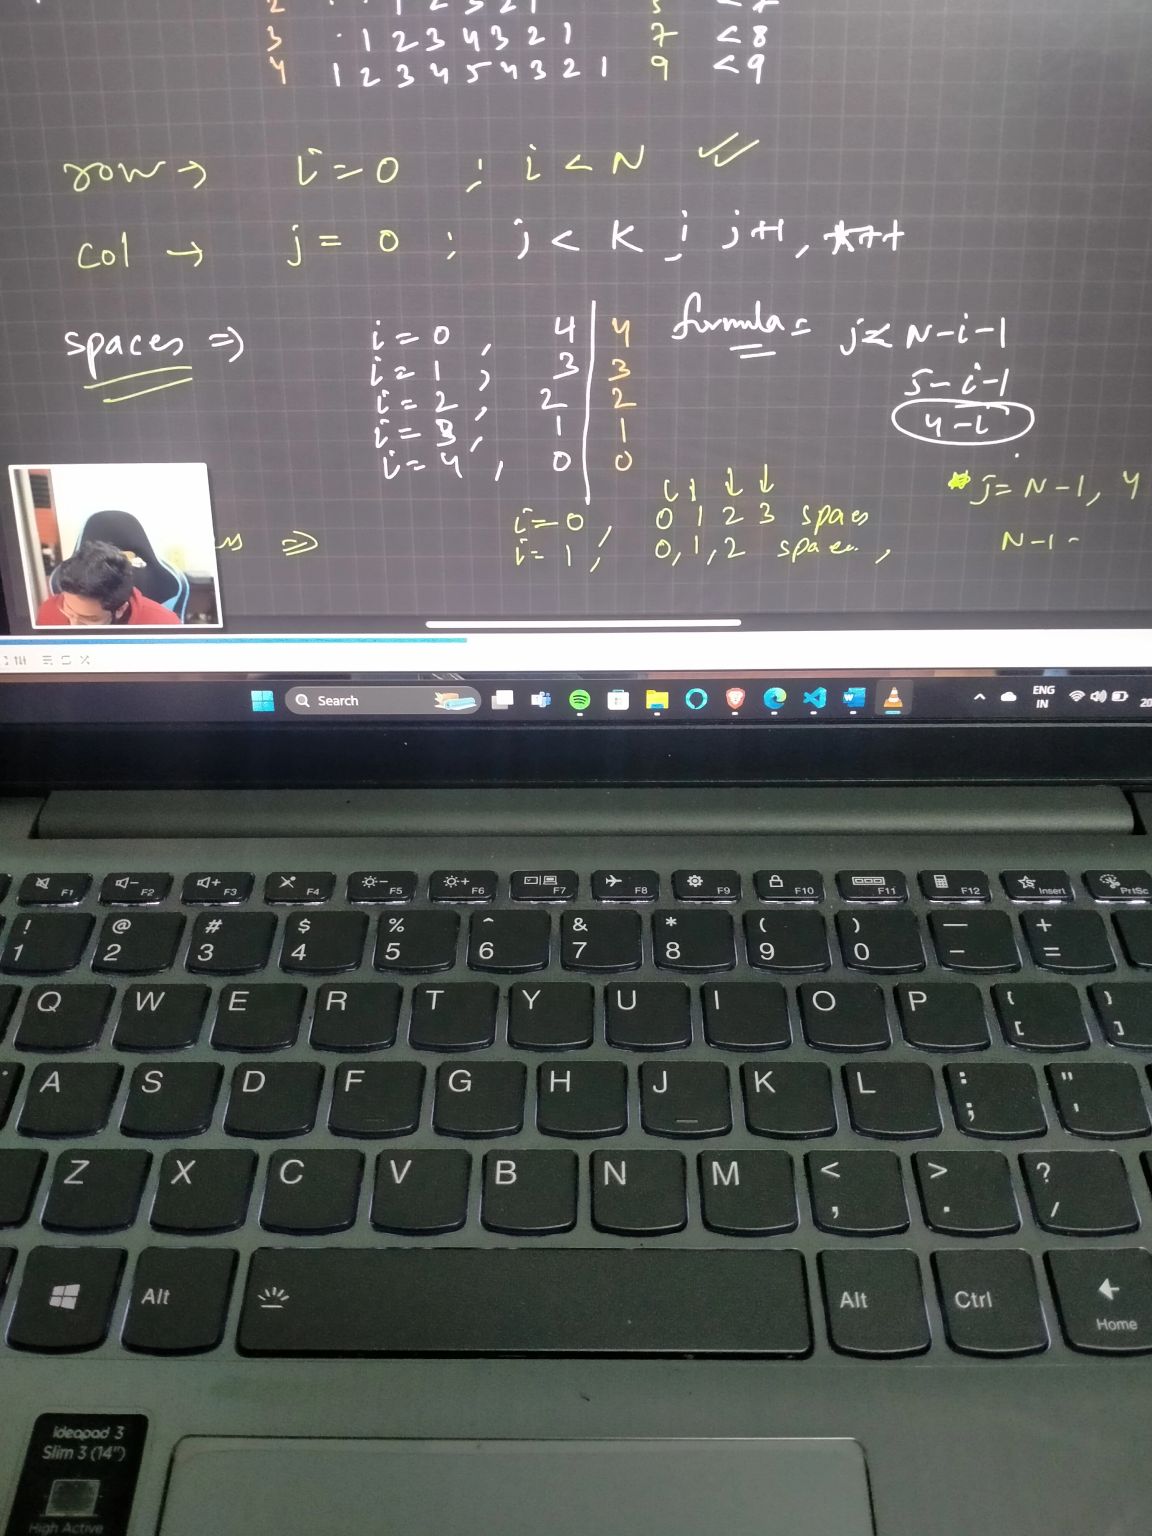 3 · 1 2 3 4 3 2 1 7 < 8
4 1 2 3 4 5 4 3 2 1 9 < 9
row → i=0 ; i < N
col → j = 0 ; j < K ; j++, K++
spaces ⇒ i = 0, 4 4 formula = j < N-i-1
i = 1, 3 3 5-i-1
i = 2, 2 2 4-i
i = 3, 1 1
i = 4, 0 0
j = N-1, 4
i=0, 0 1 2 3 spaces
i=1, 0,1,2 spaces, N-1-
Search
ENG
IN
20
F1 F2 F3 F4 F5 F6 F7 F8 F9 F10 F11 F12 Insert PrtSc
! @ # $ % ^ & * ( ) — +
1 2 3 4 5 6 7 8 9 0 - =
Q W E R T Y U I O P { }
[ ]
A S D F G H J K L : "
; '
Z X C V B N M < > ?
, . /
Alt Alt Ctrl Home
ideapad 3
Slim 3 (14")
High Active